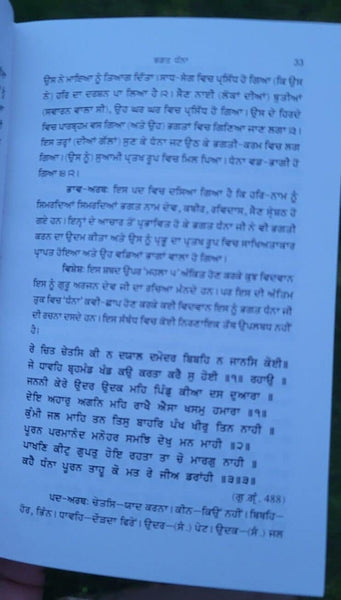 ਭਗਤ ਧੰਨਾ 33
ਉਸ ਨੇ ਮਾਇਆ ਨੂੰ ਤਿਆਗ ਦਿੱਤਾ। ਸਾਧ-ਸੰਗ ਵਿਚ ਪ੍ਰਸਿੱਧ ਹੋ ਗਿਆ (ਕਿ ਉਸ
ਨੇ) ਹਰਿ ਦਾ ਦਰਸ਼ਨ ਪਾ ਲਿਆ ਹੈ।੨। ਸੈਣ ਨਾਈ (ਲੋਕਾਂ ਦੀਆਂ) ਬੁਤੀਆਂ
(ਸਵਾਰਨ ਵਾਲਾ ਸੀ), ਉਹ ਘਰ ਘਰ ਵਿਚ ਪ੍ਰਸਿੱਧ ਹੋ ਗਿਆ। ਉਸ ਦੇ ਹਿਰਦੇ
ਵਿਚ ਪਾਰਬ੍ਰਹਮ ਵਸ ਗਿਆ (ਅਤੇ ਉਹ) ਭਗਤਾਂ ਵਿਚ ਗਿਣਿਆ ਜਾਣ ਲਗਾ।੩।
ਇਸ ਤਰ੍ਹਾਂ (ਦੀਆਂ ਗੱਲਾਂ) ਸੁਣ ਕੇ ਧੰਨਾ ਜਟ ਉਠ ਕੇ ਭਗਤੀ-ਕਰਮ ਵਿਚ ਲਗ
ਗਿਆ। (ਉਸ ਨੂੰ) ਸੁਆਮੀ ਪ੍ਰਤਖ ਰੂਪ ਵਿਚ ਮਿਲ ਪਿਆ। ਧੰਨਾ ਵਡ-ਭਾਗੀ ਹੋ
ਗਿਆ।੪।੨।
ਭਾਵ-ਅਰਥ: ਇਸ ਪਦ ਵਿਚ ਦਸਿਆ ਗਿਆ ਹੈ ਕਿ ਹਰਿ-ਨਾਮ ਨੂੰ
ਸਿਮਰਦਿਆਂ ਸਿਮਰਦਿਆਂ ਭਗਤ ਨਾਮ ਦੇਵ, ਕਬੀਰ, ਰਵਿਦਾਸ, ਸੈਣ ਸ੍ਰੇਸ਼ਠ ਹੋ
ਗਏ ਹਨ। ਇਨ੍ਹਾਂ ਦੇ ਆਚਾਰ ਤੋਂ ਪ੍ਰਭਾਵਿਤ ਹੋ ਕੇ ਭਗਤ ਧੰਨਾ ਜੀ ਨੇ ਵੀ ਭਗਤੀ
ਕਰਨ ਦਾ ਉਦਮ ਕੀਤਾ ਅਤੇ ਉਸ ਨੂੰ ਪ੍ਰਭੂ ਦਾ ਪ੍ਰਤਖ ਰੂਪ ਵਿਚ ਸਾਖਿਅਤਾਕਾਰ
ਪ੍ਰਾਪਤ ਹੋਇਆ ਅਤੇ ਉਹ ਵਡਿਆਂ ਭਾਗਾਂ ਵਾਲਾ ਹੋ ਗਿਆ।
ਵਿਸ਼ੇਸ਼: ਇਸ ਸ਼ਬਦ ਉਪਰ 'ਮਹਲਾ ੫' ਅੰਕਿਤ ਹੋਣ ਕਰਕੇ ਕੁਝ ਵਿਦਵਾਨ
ਇਸ ਨੂੰ ਗੁਰੂ ਅਰਜਨ ਦੇਵ ਜੀ ਦਾ ਰਚਿਆ ਮੰਨਦੇ ਹਨ। ਪਰ ਇਸ ਦੀ ਅੰਤਿਮ
ਤੁਕ ਵਿਚ 'ਧੰਨਾ' ਕਵੀ-ਛਾਪ ਹੋਣ ਕਰਕੇ ਕਈ ਵਿਦਵਾਨ ਇਸ ਨੂੰ ਭਗਤ ਧੰਨਾ ਜੀ
ਦੀ ਰਚਨਾ ਦਸਦੇ ਹਨ। ਇਸ ਸੰਬੰਧ ਵਿਚ ਕੋਈ ਨਿਰਣਾਇਕ ਤੱਥ ਉਪਲਬਧ ਨਹੀਂ
ਹੈ।
ਰੇ ਚਿਤ ਚੇਤਸਿ ਕੀ ਨ ਦਯਾਲ ਦਮੋਦਰ ਬਿਬਹਿ ਨ ਜਾਨਸਿ ਕੋਈ॥
ਜੇ ਧਾਵਹਿ ਬ੍ਰਹਮੰਡ ਖੰਡ ਕਉ ਕਰਤਾ ਕਰੈ ਸੁ ਹੋਈ ॥੧॥ ਰਹਾਉ ॥
ਜਨਨੀ ਕੇਰੇ ਉਦਰ ਉਦਕ ਮਹਿ ਪਿੰਡੁ ਕੀਆ ਦਸ ਦੁਆਰਾ ॥
ਦੇਇ ਅਹਾਰੁ ਅਗਨਿ ਮਹਿ ਰਾਖੈ ਐਸਾ ਖਸਮੁ ਹਮਾਰਾ ॥੧॥
ਕੁੰਮੀ ਜਲ ਮਾਹਿ ਤਨ ਤਿਸੁ ਬਾਹਰਿ ਪੰਖ ਖੀਰੁ ਤਿਨ ਨਾਹੀ ॥
ਪੂਰਨ ਪਰਮਾਨੰਦ ਮਨੋਹਰ ਸਮਝਿ ਦੇਖੁ ਮਨ ਮਾਹੀ ॥੨॥
ਪਾਖਣਿ ਕੀਟੁ ਗੁਪਤੁ ਹੋਇ ਰਹਤਾ ਤਾ ਚੋ ਮਾਰਗੁ ਨਾਹੀ ॥
ਕਹੈ ਧੰਨਾ ਪੂਰਨ ਤਾਹੂ ਕੋ ਮਤ ਰੇ ਜੀਅ ਡਰਾਂਹੀ ॥੩॥੩॥
(ਗੁ.ਗ੍ਰੰ. 488)
ਪਦ-ਅਰਥ: ਚੇਤਸਿ-ਯਾਦ ਕਰਨਾ। ਕੀਨ-ਕਿਉਂ ਨਹੀਂ। ਬਿਬਹਿ-
ਹੋਰ, ਭਿੰਨ। ਧਾਵਹਿ-ਦੌੜਦਾ ਫਿਰੇਂ। ਉਦਰ-(ਸੰ.) ਪੇਟ। ਉਦਕ-(ਸੰ.) ਜਲ